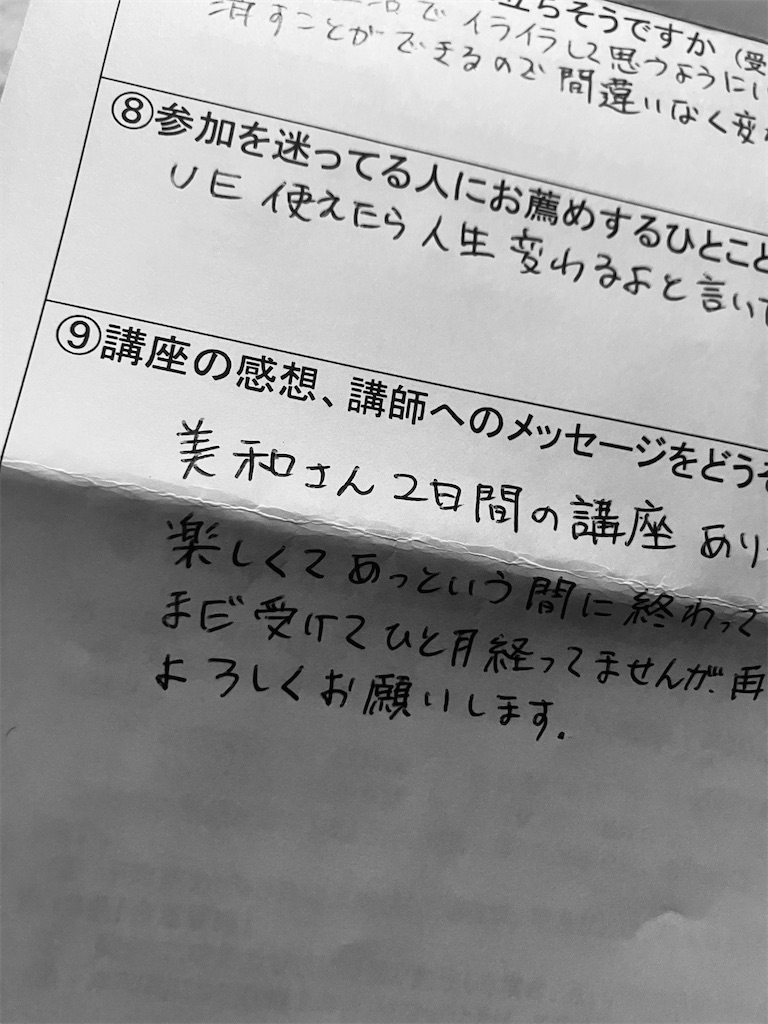 立ちそうですか(受
でイライラして思うようにい
消すことができるので間違いなく変わ
⑧参加を迷ってる人にお薦めするひとこと
UE使えたら人生変わるよと言いた
⑨講座の感想、講師へのメッセージをどうぞ
美和さん2日間の講座あり
楽しくてあっという間に終わって
まだ受けてひと月経ってませんが、再
よろしくお願いします.